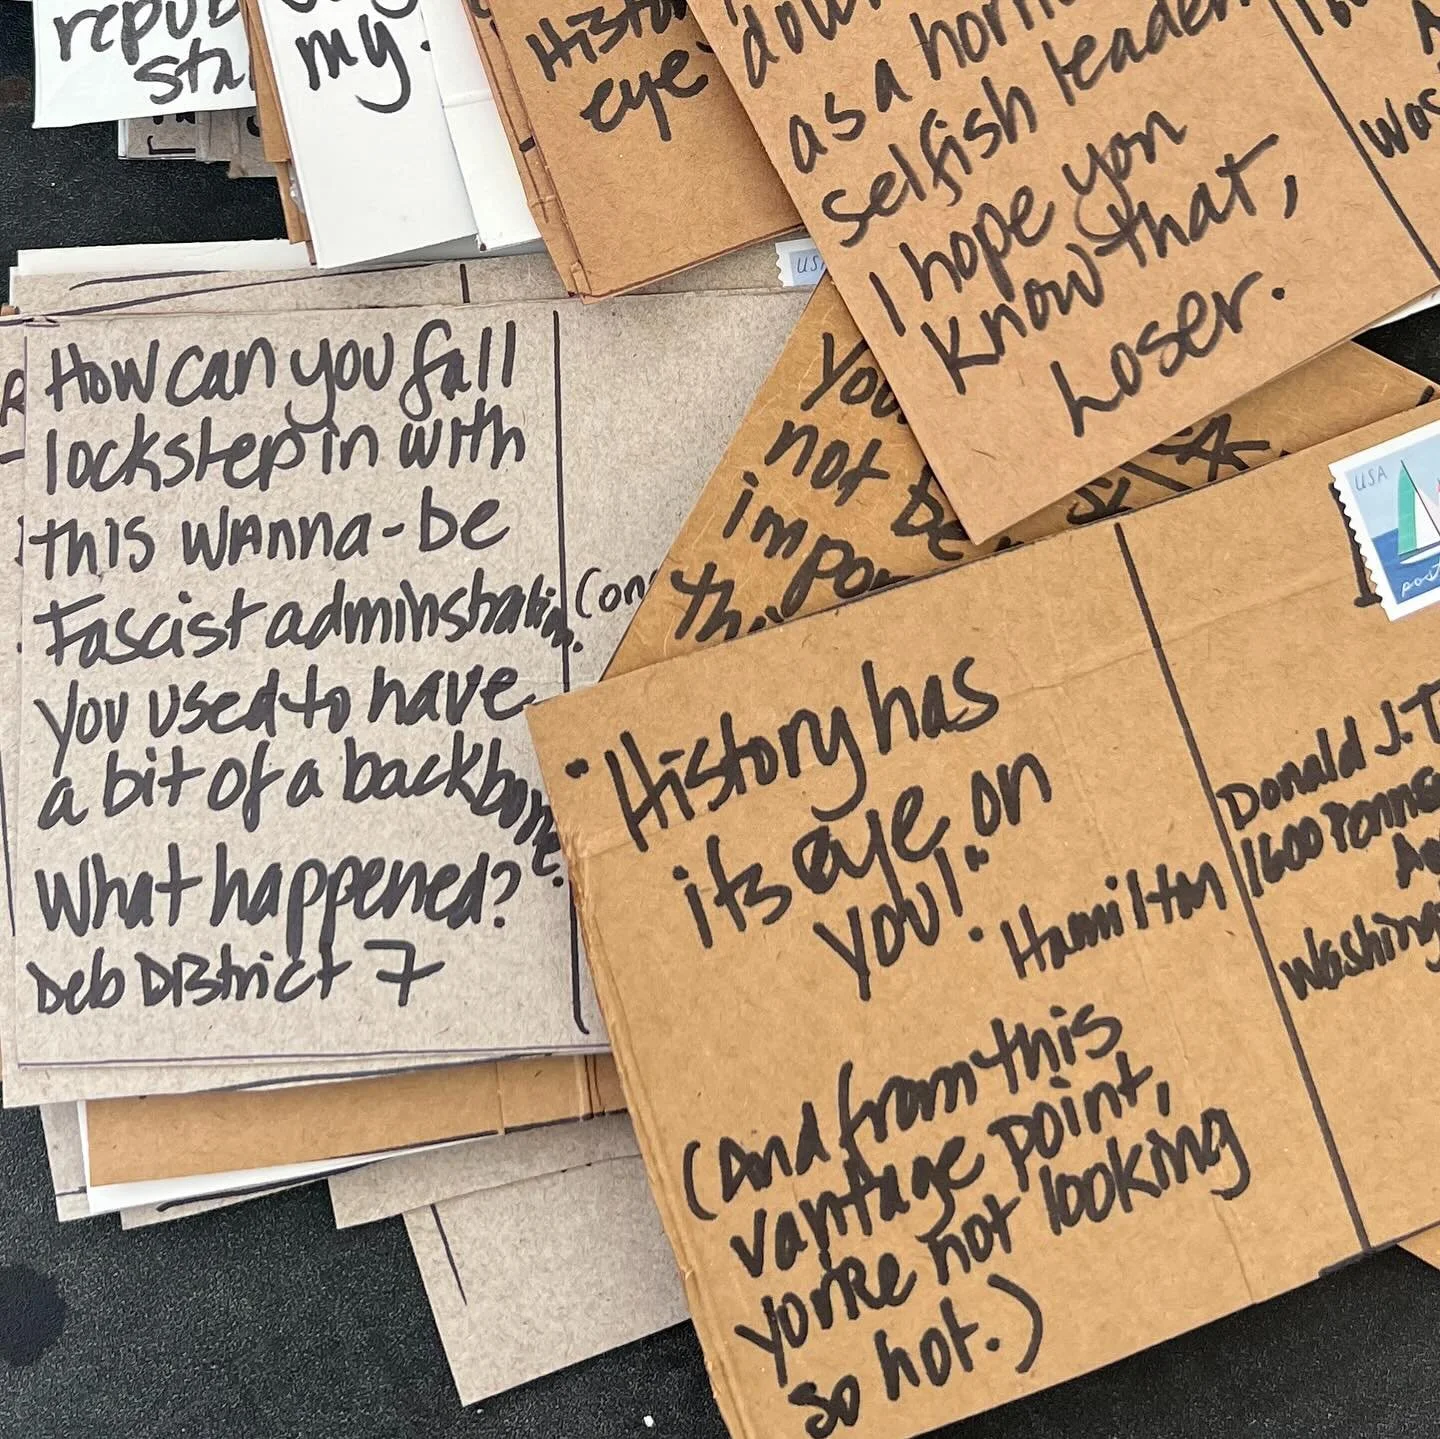 my.
eye
as a
selfish leader
I hope you
know that,
Loser.
USA
How can you fall
lockstep in with
this wanna-be
Fascist adminstration.
you used to have
a bit of a backbone.
What happened?
Deb District 7
not be
"History has
its eye on
you!"
· Hamilton
(And from this
vantage point,
you're not looking
so hot.)
USA
Donald J. T
1600 Penns
Washing